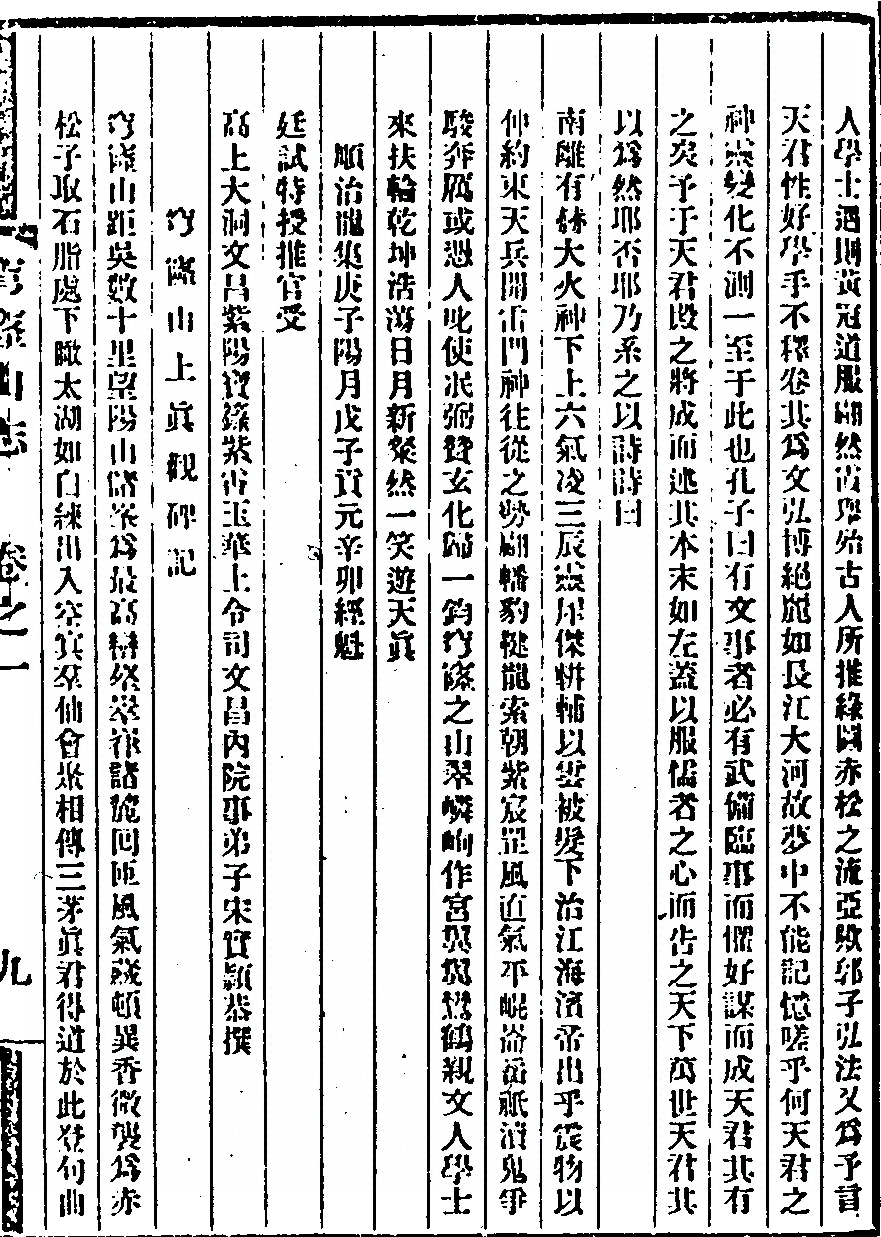 人學士遇則黃冠道服翩然高舉殆古人所推綠圖赤松之流亞歟郭子弘法又為予言
天君性好學手不釋卷其為文弘博絕麗如長江大河故夢中不能記憶嗟乎何天君之
神靈變化不測一至于此也孔子曰有文事者必有武備臨事而懼好謀而成天君其有
之矣予于天君殿之將成而述其本末如左蓋以服儒者之心而告之天下萬世天君其
以為然耶否耶乃系之以詩詩曰
南離有赫大火神下上六氣凌三辰靈犀傑輔以雲被髮下治江海濱帝出乎震物以
仲約束天兵開雷門神往從之勞翩幡豹鞬龍索朝紫宸罡風直氣平崐崙嶽祇瀆鬼爭
駿奔厲或憑人叱使泯弼贊玄化歸一鈞穹窿之山翠嶙峋作宮翼翼鸞鶴親文人學士
來扶輪乾坤浩蕩日月新粲然一笑遊天眞
順治龍集庚子陽月戊子貢元辛卯經魁
廷試特授推官受
高上大洞文昌紫陽寶籙紫霄玉華上令司文昌內院事弟子宋實穎恭撰
穹窿山上眞觀碑記
穹窿山距吳數十里望陽山諸峯為最高攢巒翠諸麓回匝風氣藏頓異香微襲為赤
松子取石脂處下瞰太湖如白練出入空冥羣仙會聚相傳三茅眞君得道於此在句曲
穹窿山志
卷之一
九